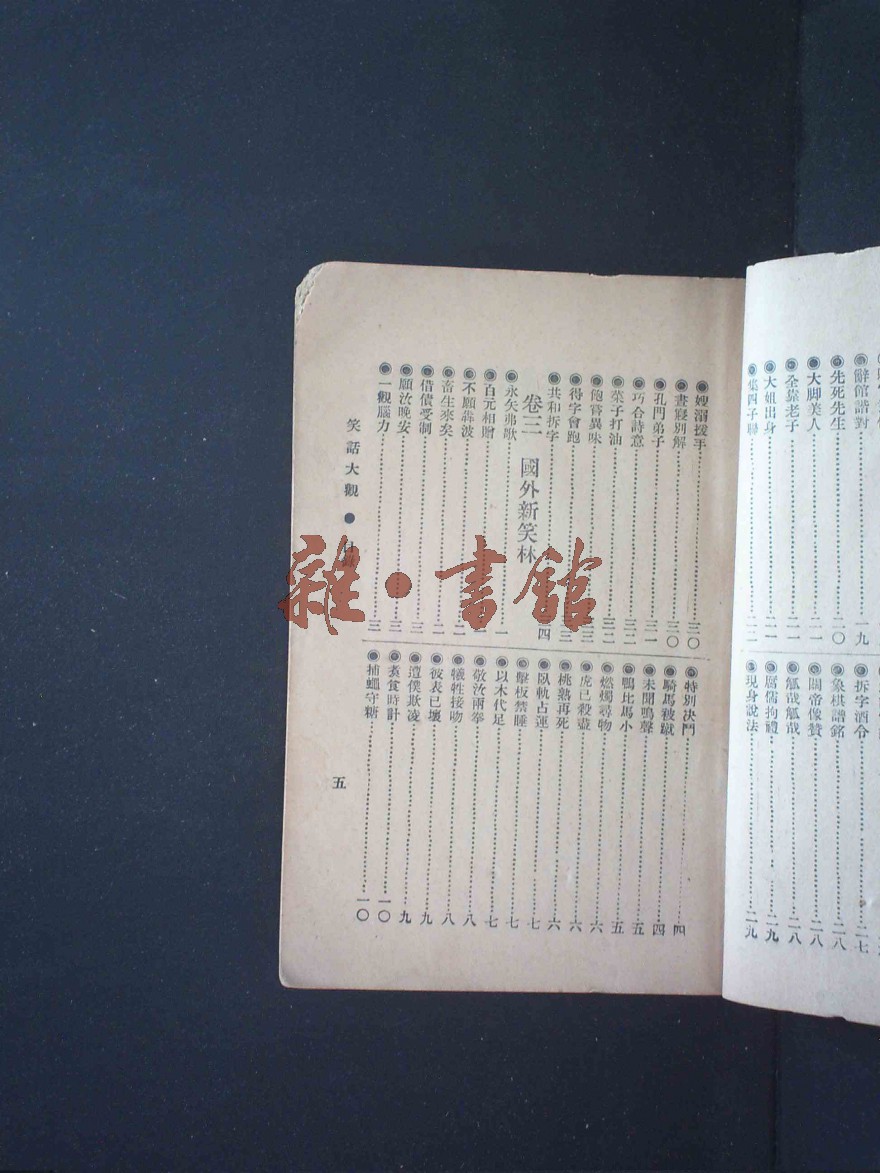 辭館諧對
先死先生……二〇
大脚美人……二一
全靠老子……二一
大姐出身……二一
集四子聯……二二
拆字酒令……二七
象棋譜銘……二八
關帝像贊……二八
觚哉觚哉……二八
厲儒拘禮……二九
現身說法……二九
嫂溺援手……三〇
晝寢別解……三〇
孔門弟子……三一
巧合詩意……三二
菜子打油……三二
飽嘗異味
得字會跑
共和拆字
卷三 國外新笑林
永矢弗歌……一
百元相贈
不願犇波
畜生來矣……二
借債受制
願汝晚安……三
一觀腦力……三
特別決鬥……四
騎馬被蹴……四
未聞鳴聲……五
鴨比馬小……五
燃燭尋物……六
虎已殺盡……六
桃熟再死……六
臥軌占運……七
擊板禁睡……七
以木代足……七
敬汝兩拳……八
犧牲接吻……八
彼表已壞……九
遣僕欺凌……九
煮食時計……一〇
捕蠅守糖……一〇
笑話大觀 ● 目錄
五
雜·書館